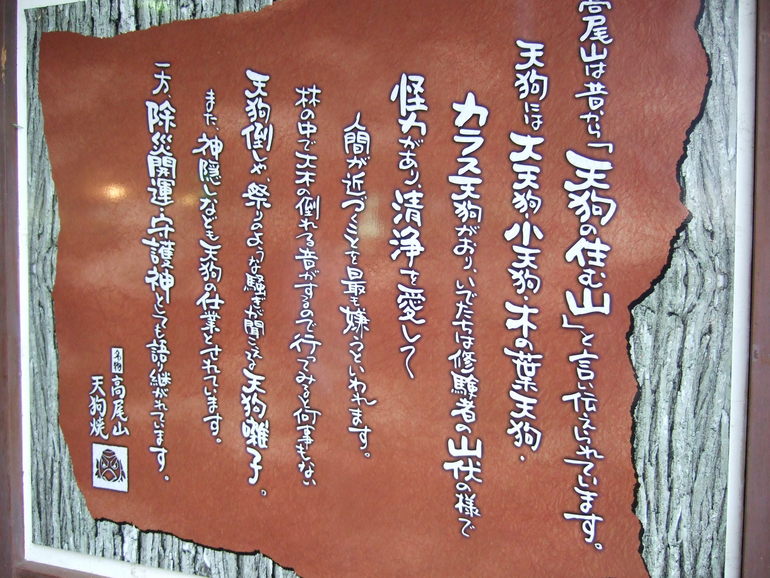 高尾山は昔から「天狗の住む山」と言い伝えられています。
天狗には大天狗・小天狗・木の葉天狗・
カラス天狗がおり、いでたちは修験者の山伏の様で
怪力があり、清浄を愛して
人間が近づくことを最も嫌うといわれます。
林の中で大木の倒れる音がするので行ってみると何事もない
天狗倒しや、祭りのような騒ぎが聞こえる天狗囃子。
また、神隠しなども天狗の仕業とされています。
一方 除災開運・守護神としても語り継がれています。
名物 高尾山
天狗焼